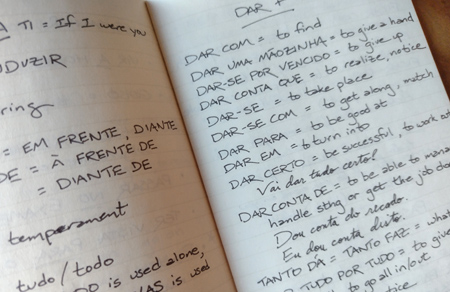 A TI = If I were you
DUZIR
ring
= EM FRENTE, DIANTE
DE = À FRENTE DE
= DIANTE DE
temperament
tudo / todo
DO is used alone,
AS is used
DAR +
DAR COM = to find
DAR UMA MÃOZINHA = to give a hand
DAR-SE POR VENCIDO = to give up
DAR CONTA QUE = to realize, notice
DAR-SE = to take place
DAR-SE COM = to get along, match
DAR PARA = to be good at
DAR EM = to turn into
DAR CERTO = be successful, to work out
Vai dar tudo certo!
DAR CONTA DE = to be able to mana
handle sthg or get the job don
Dou conta do recado.
Eu dou conta disto.
TANTO DÁ = TANTO FAZ = what
TUDO POR TUDO = to give
to go all in/out
notice